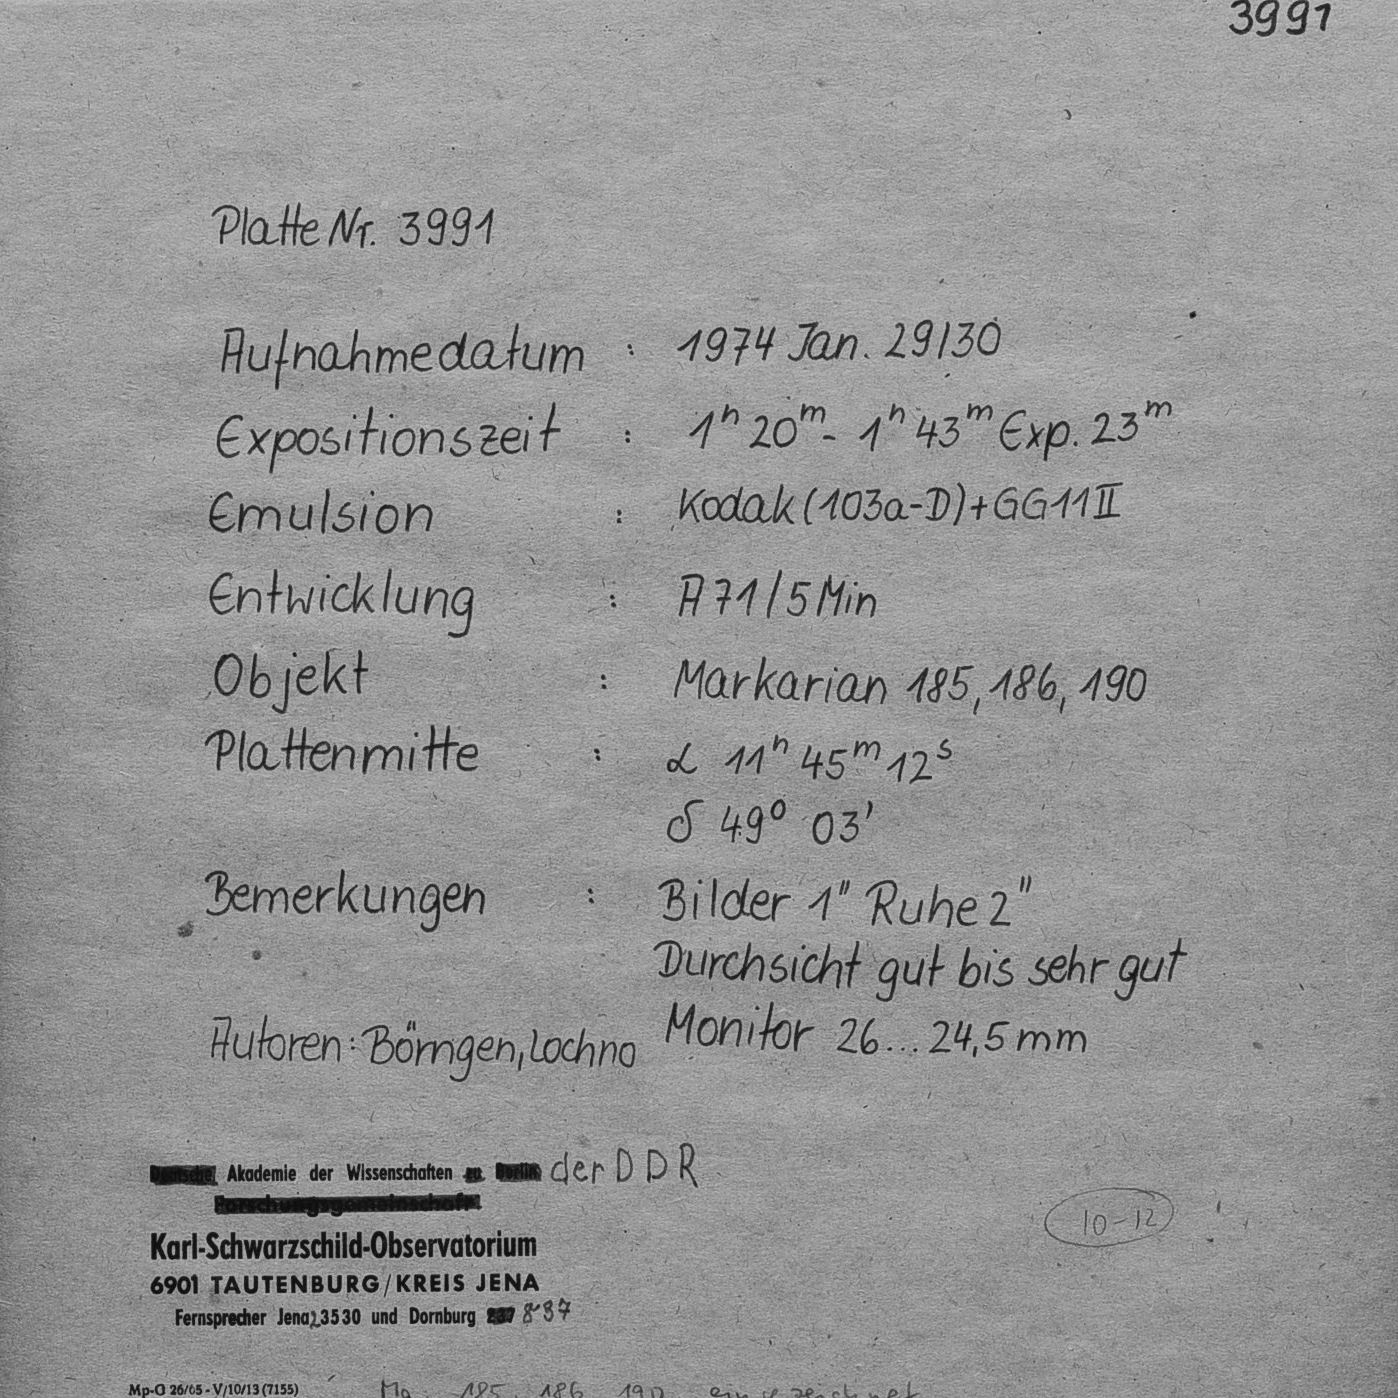 3991
Platte Nr. 3991
Aufnahmedatum : 1974 Jan. 29/30
Expositionszeit : 1ʰ 20ᵐ - 1ʰ 43ᵐ Exp. 23ᵐ
Emulsion : Kodak (103a-D)+GG11 II
Entwicklung : A 71/5 Min
Objekt : Markarian 185, 186, 190
Plattenmitte : α 11ʰ 45ᵐ 12ˢ
δ 49° 03'
Bemerkungen : Bilder 1" Ruhe 2"
Durchsicht gut bis sehr gut
Monitor 26...24,5 mm
Autoren: Börngen, Lochno
Akademie der Wissenschaften der DDR
Forschungsgemeinschaft
10-12
Karl-Schwarzschild-Observatorium
6901 TAUTENBURG/KREIS JENA
Fernsprecher Jena 23530 und Dornburg 837
Mp-G 26/65 - V/10/13 (7155)
185 186 190 eingezeichnet